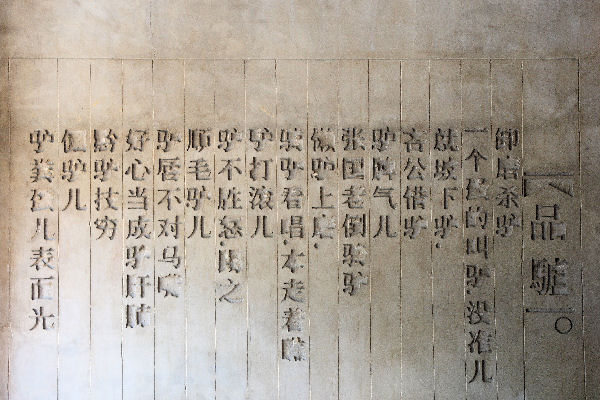 品驢
卸磨杀驴
一个的叫驴·没准儿
就坡下驴·
公借驴
驴脾气儿
张国老倒骑驴
懒驴上磨·
骑驴看唱·本走着瞧
驴打滚儿
驴不胜怒·蹄之
顺毛驴儿
驴唇不对马嘴
好心当成驴肝肺
黔驴技穷
倔驴儿
驴粪儿表面光